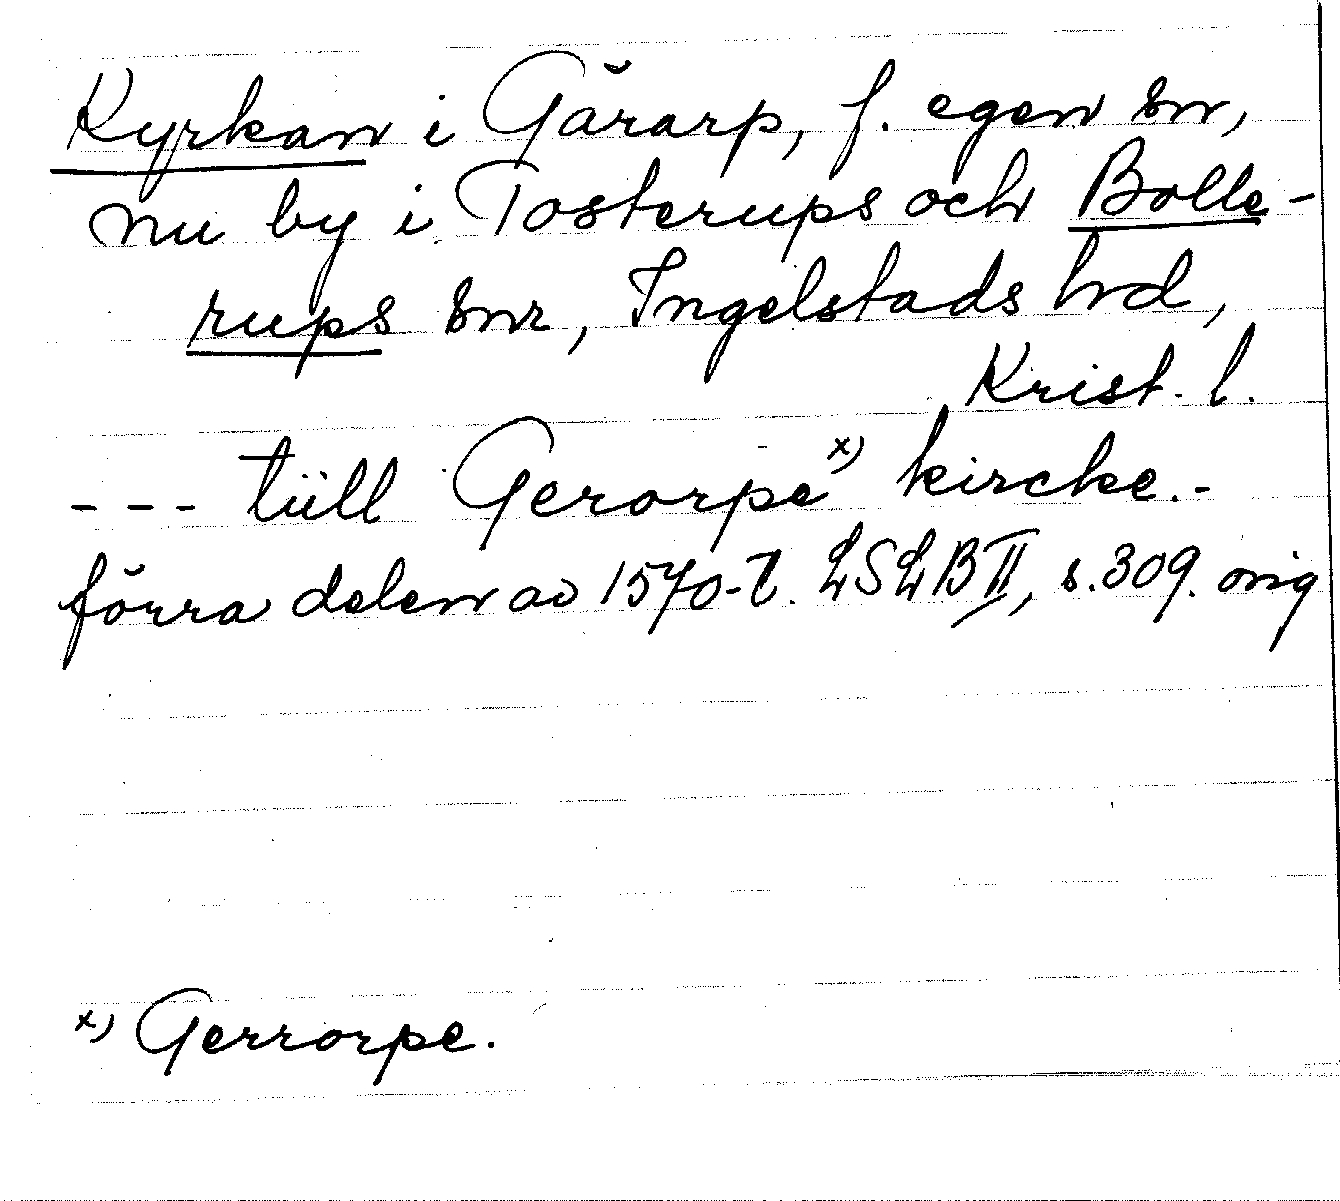 Kyrkan i Gărarp, f. egen sn,
nu by i Tosterups och Bolle-
rups snr, Ingelstads hd,
Krist. l.
--- tüll Gerorpe x) kircke.-
förra delen av 1570-t. LSLB II, s. 309. orig
x) Gerrorpe.